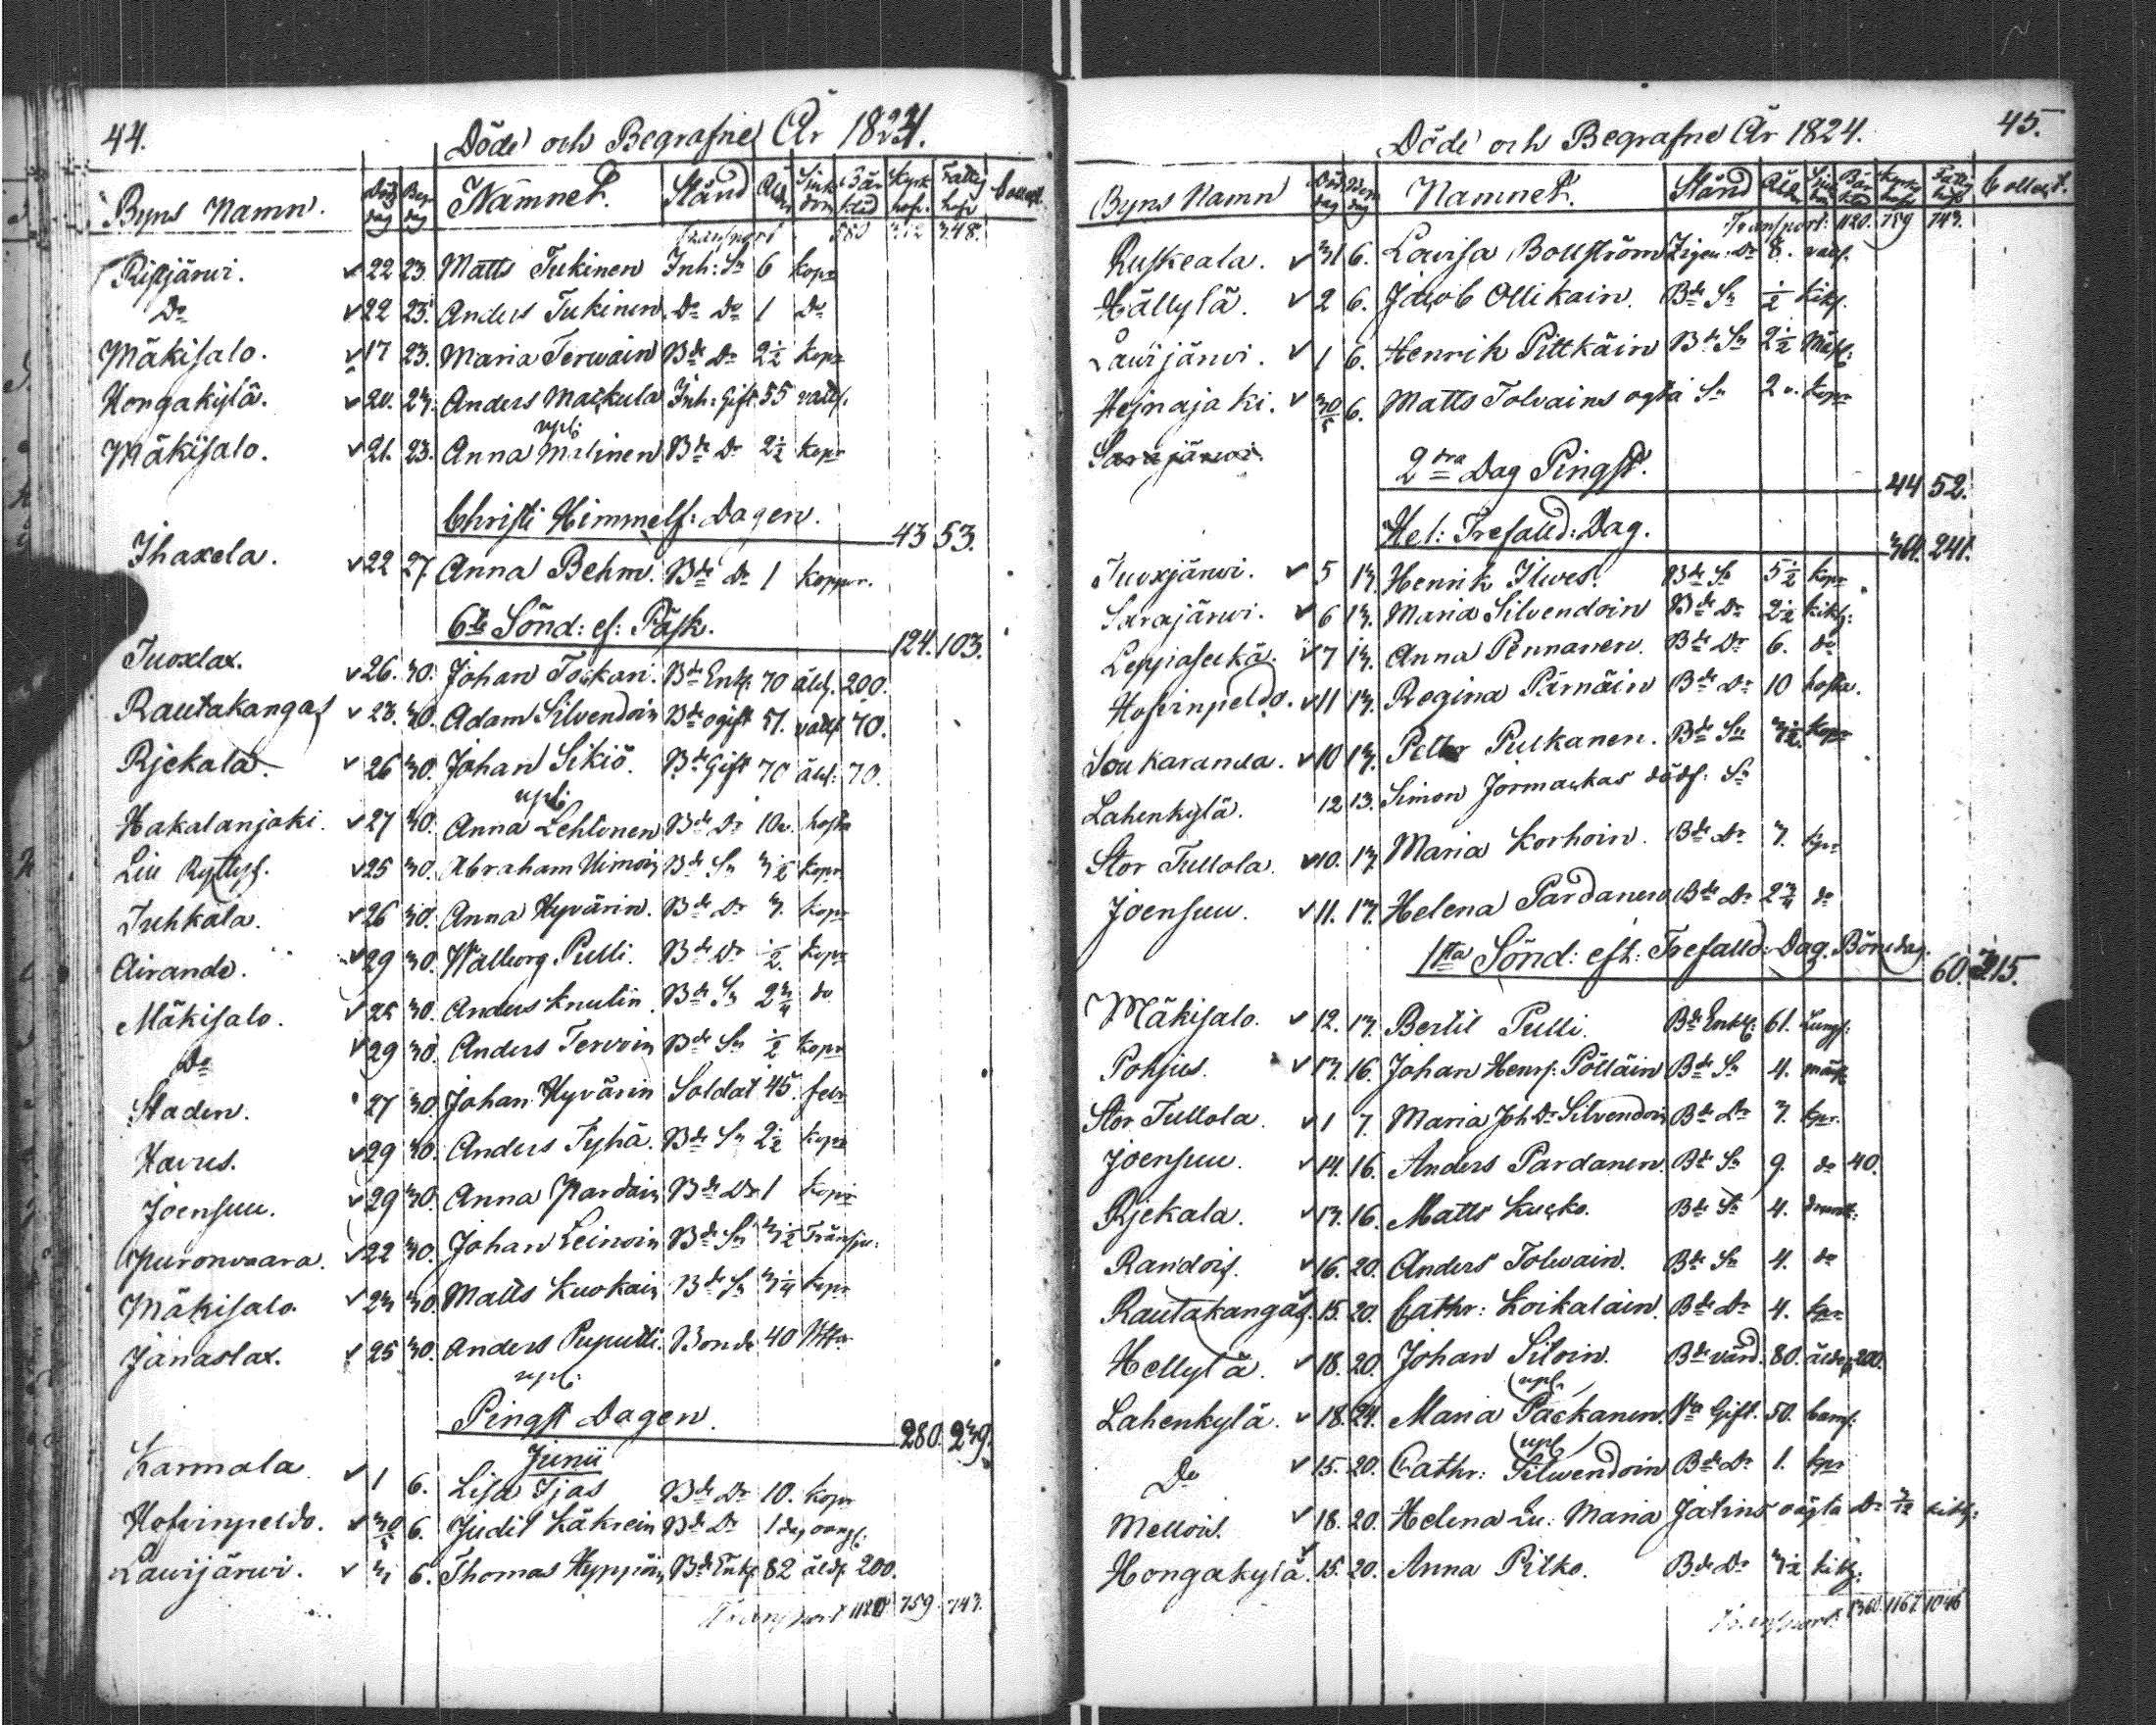 44.
Döde och Begrafne År 1824.
Byns Namn. Död dag Begr dag Namnet. Stånd Ålder Sjuk dom Bår kläd Kyrk hofv. Fattig hofv Collect.
Transport 580 312 348.
Ristjärwi. 22 23. Matts Tukinen Inh: Sn 6 kopr
Do 22 23. Anders Tukinen. Do Do 1 Do
Mäkisalo. 17 23. Maria Terwain Bde Dr 2½ kopr
Hongakylä. 20. 23. Anders Mackula Inh: Gift 55 vatts.
upl:
Mäkisalo. 21. 23. Anna Malinen Bde Dr 2½ kopr
Christi Himmelf: Dagen. 43 53.
Ihaxela. 22 27. Anna Behm. Bde Dr 1 koppr.
6te Sönd: ef: Påsk. 124. 103.
Tuoxlax. 26. 30. Johan Toskan. Bde Enkl. 70 ålds. 200.
Rautakangas 23. 30. Adam Silvendoin Bde ogift 51. vatts 70.
Rjekala. 26 30. Johan Sikiö. Bde Gift 70 åld: 70.
upl:
Hakalanjoki. 27 30. Anna Lehtonen Bde Dr 10v. hosta
Lin Ryttys. 25 30. Abraham Uimoin Bde Sn 3½ kopr
Tuhkala. 26 30. Anna Hyvärin. Bde Dr 3. kopr
Airando. 29 30. Walborg Pulli. Bde Dr ½. kopr
Mäkisalo. 25 30. Anders Knutin. Bde Sn 2¾ do
Do 29 30. Anders Tervoin Bde Sn ½ kopr
Staden. 27 30. Johan Hyvärin Soldat 45. febr
Havus. 29 30. Anders Tyhä. Bde Sn 2½ kopr
Joensuu. 29 30. Anna Pardain Bde Dr 1 kopr
Puronvaara. 22 30. Johan Leinoin Bde Sn 3½ Tränsju:
Mäkisalo 23 30. Matts Kuokain Bde Sn 3¼ kopr
Jänaslax. 25 30. Anders Puputti. Bonde 40
upl:
Pingst Dagen. 280. 239.
Junii
Karmala 1 6. Lisa Ijas Bde Dr 10. kopr
Hofvinpeldo. 30/5 6. Judit Käkrein Bde Dr 1 dag oangf.
Lawijärwi. 3 6. Thomas Hyppöin Bde Enkl 82 ålds 200.
Transport 1120 759. 743.
45.
Döde och Begrafne År 1824.
Byns Namn Död dag Begr dag Namnet. Stånd Åld Sjuk dom Bår kläd Kyrko hofv Fattig hofv Collect.
Transport: 1120. 759 743.
Ruskeala. 31 6. Lovisa Bollström Zigeu: Dr 8. vats.
Hällylä. 2 6. Jacob Ollikain. Bde Sn ½ kikh.
Lawijärwi. 1 6. Henrik Pittkäin Bde Sn 2½ Mässl:
Hejnajoki. 30/5 6. Matts Tolvains ogta Sn 2v. kopr
Sarajärwi.
2dra Dag Pingst. 44 52.
Hel: Trefalld: Dag. 364. 241.
Tuoxjärwi. 5 13. Henrik Ilwes. Bde Sn 5½ kopr
Sarajärwi. 6 13. Maria Silvendoin Bde Dr 2½ kikh:
Leppäselkä. 7 13. Anna Pennanen. Bde Dr 6. do
Hofvinpeldo. 11 13. Regina Pärnäin Bde Dr 10 hosta.
Soukaranda. 10 13. Petter Pulkanen. Bde Sn 3½. kopr
Lahenkylä. 12 13. Simon Jormackas dödf: Sn
Stor Tullola. 10. 13 Maria Korhoin. Bde Dr 3. kpr
Joensuu. 11. 13. Helena Pardanen Bde Dr 2¾ do
1sta Sönd: eft: Trefalld: Dag. Bönedag. 60. 215.
Mäkisalo. 12. 13. Bertil Pulli. Bde Enkl: 61. Lungs:
Pohjus. 13. 16. Johan Henrs: Pölläin Bde Sn 4. mässl
Stor Tullola. 1 7. Maria Joh Dr Silvendoin Bde Dr 3. kpr.
Joensuu. 14. 16. Anders Pardanen. Bde Sn 9. do 40.
Rjekala. 13. 16. Matts Kucko. Bde Sn 4.
Randois. 16. 20. Anders Tolvain. Bde Sn 4. do
Rautakangas. 15. 20. Cathr: Koikalain. Bde Dr 4. kpr
Hellylä. 18. 20. Johan Siloin. Bde värd. 80. ålds 200.
upl.
Lahenkylä. 18. 24. Maria Packanen. Gift. 50.
upl
Do 15. 20. Cathr: Silwendoin Bde Dr 1. kpr
Mellois. 18. 20. Helena Lu: Maria Jatins oägta Dr 3/12 kikh:
Hongakylä. 15. 20. Anna Pitko. Bde Dr 3½ kikh:
Transport: 1360. 1167. 1046